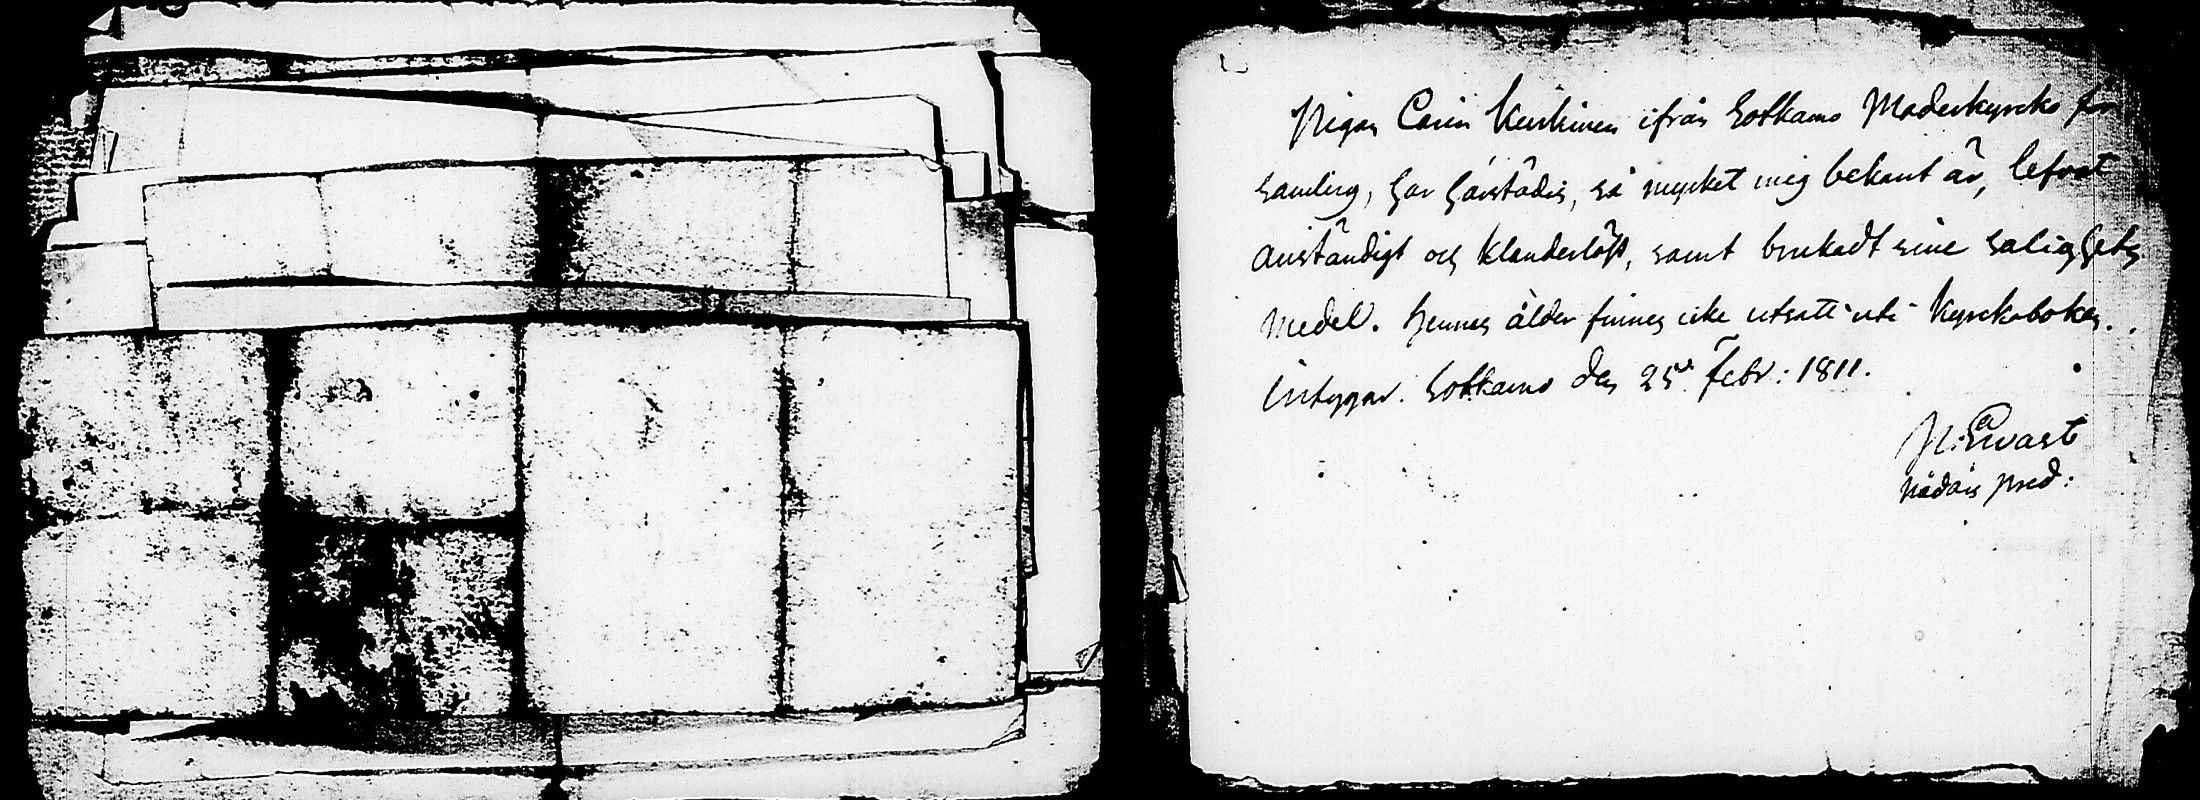 Pigan Carin Keskinen ifrån Sotkamo Moderkyrko för
samling, har härstädes, så mycket mig bekant är, lefvat
anständigt och klanderlöst, samt brukadt sine salighets
medel. Hennes ålder finnes icke utsatt uti Kyrckoboken.
intygar. Sotkamo den 25 Febr: 1811.
Nådårs pred: